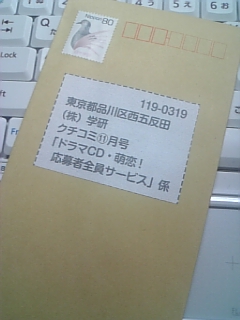 Nippon 80
119-0319
東京都品川区西五反田
（株）学研
クチコミ⑪月号
「ドラマCD・萌恋！
応募者全員サービス」係